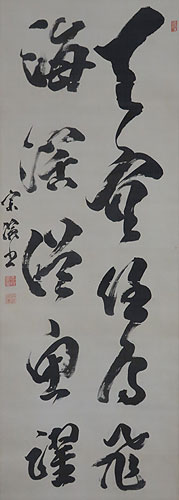 天空任鳥飛
海從魚躍
宗書